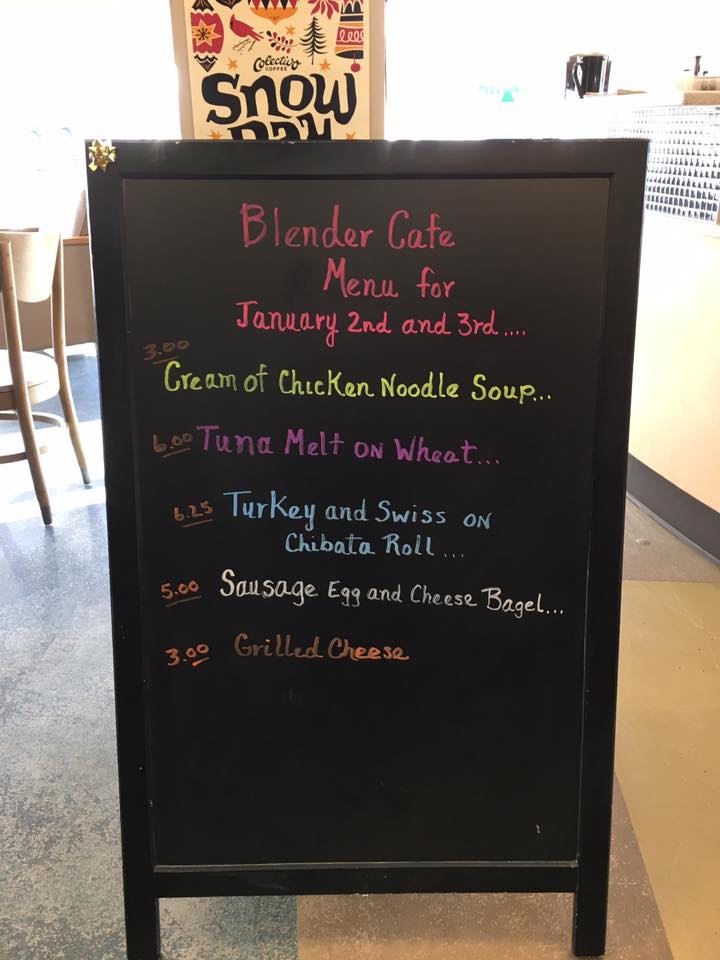 Colectivo
COFFEE
Snow
Day
Blender Cafe
Menu for
January 2nd and 3rd....
3.00
Cream of Chicken Noodle Soup...
6.00 Tuna Melt on Wheat...
6.25 Turkey and Swiss on
Chibata Roll ...
5.00 Sausage Egg and Cheese Bagel...
3.00 Grilled Cheese